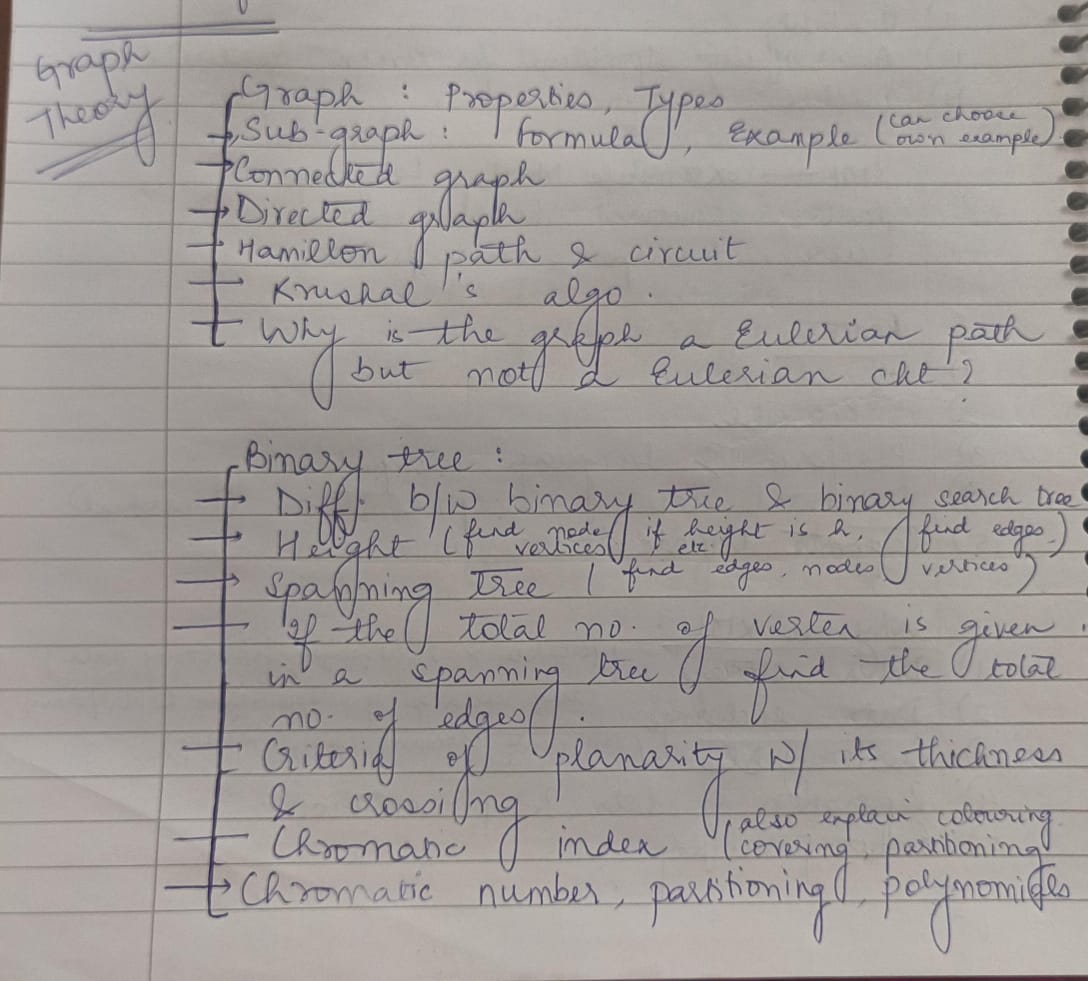 Graph
Theory
Graph : Properties, Types
Sub-graph : formula, Example (can choose
own example)
Connected graph
Directed graph
Hamilton path & circuit
Kruskal's algo.
Why is the graph a Eulerian path
but not a Eulerian ckt?
Binary tree :
Diff. b/w binary tree & binary search tree
Height (find node if height is h, find edges)
vertices etc.
Spanning Tree (find edges, nodes, vertices)
If the total no. of vertex is given
in a spanning tree find the total
no. of edges.
Criteria of planarity w/ its thickness
& crossing
Chromatic index (also explain colouring
covering, partitioning
Chromatic number, partitioning, polynomials